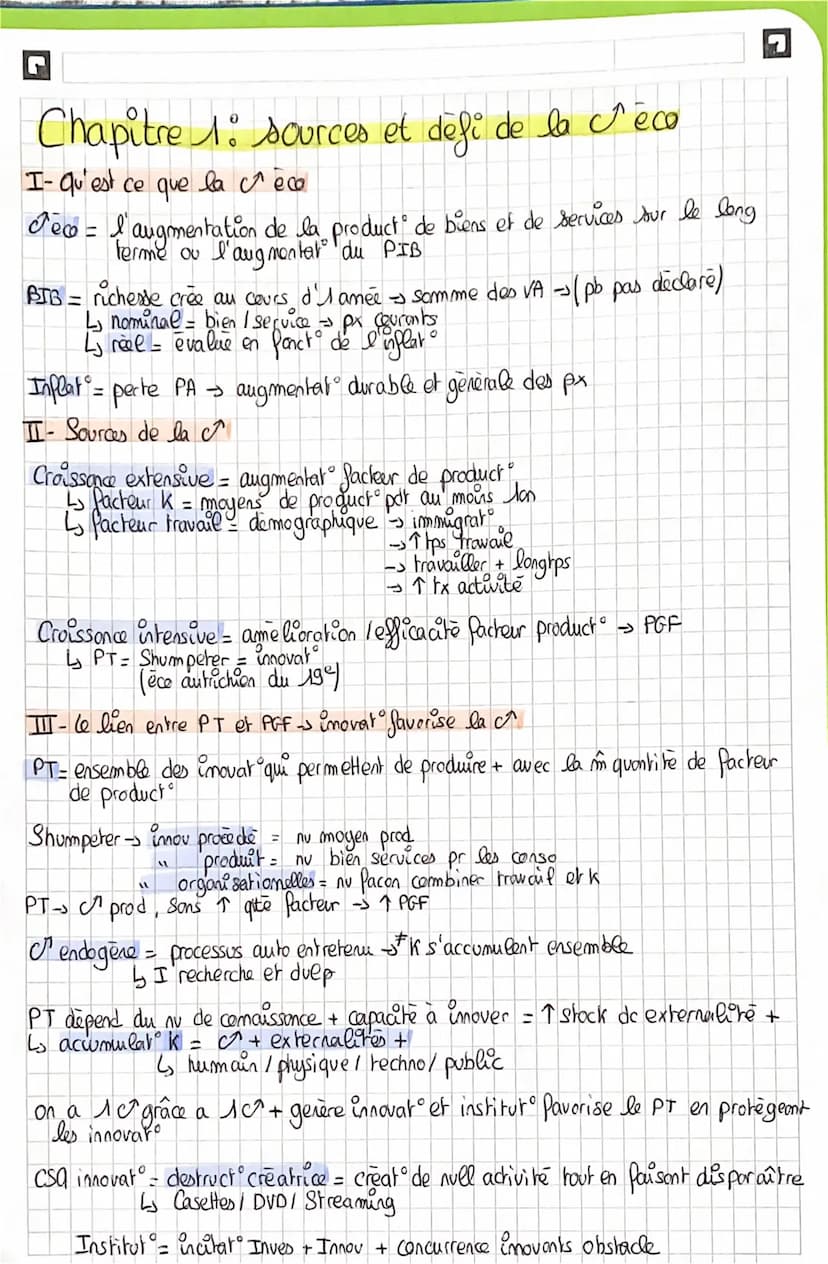 Chapitre 1: sources et défi de la C↗ éco
I- Qu'est ce que la C↗ éco
C↗éco = l'augmentation de la product° de biens et de services sur le long
terme ou l'augmentat° du PIB
PIB = richesse crée au cours d'1 année → somme des VA → (pb pas déclaré)
↳ nominal = bien / service → px courants
↳ réel = évalué en fonct° de l'inflat°
Inflat° = perte PA → augmentat° durable et générale des px
II- Sources de la C↗
Croissance extensive = augmentat° facteur de product°
↳ facteur K = moyens de product° pdt au moins 1an
↳ facteur travail = démographique → immigrat°
→ ↑ tps travail
→ travailler + longtps
→ ↑ tx activité
Croissance intensive = amélioration / efficacité facteur product° → PGF
↳ PT = Shumpeter = innovat°
(éco autrichien du 19e)
III- le lien entre PT et PGF → inovat° favorise la C↗
PT = ensemble des inovat° qui permettent de produire + avec la m̂ quantité de facteur
de product°
Shumpeter → innov procédé = nv moyen prod
" produit = nv bien services pr les conso
" organisationnelles = nv facon combiner travail et k
PT → C↗ prod, sans ↑ qté facteur → ↑ PGF
C↗ endogène = processus auto entretenu → ≠ K s'accumulent ensemble
↳ I recherche et dvep
PT dépend du nv de connaissance + capacité à innover = ↑ stock de externalité +
↳ accumulat° k = C↗ + externalités +
↳ humain / physique / techno / public
on a 1 C↗ grâce a 1 C↗ + genère innovat° et institut° favorise le PT en protégeant
les innovat°
CSQ innovat° = destruct° créatrice = créat° de nvell activité tout en faisant disparaître
↳ Casettes / DVD / Streaming
Institut° = incitat° Inves + Innov + concurrence inovants obstacle